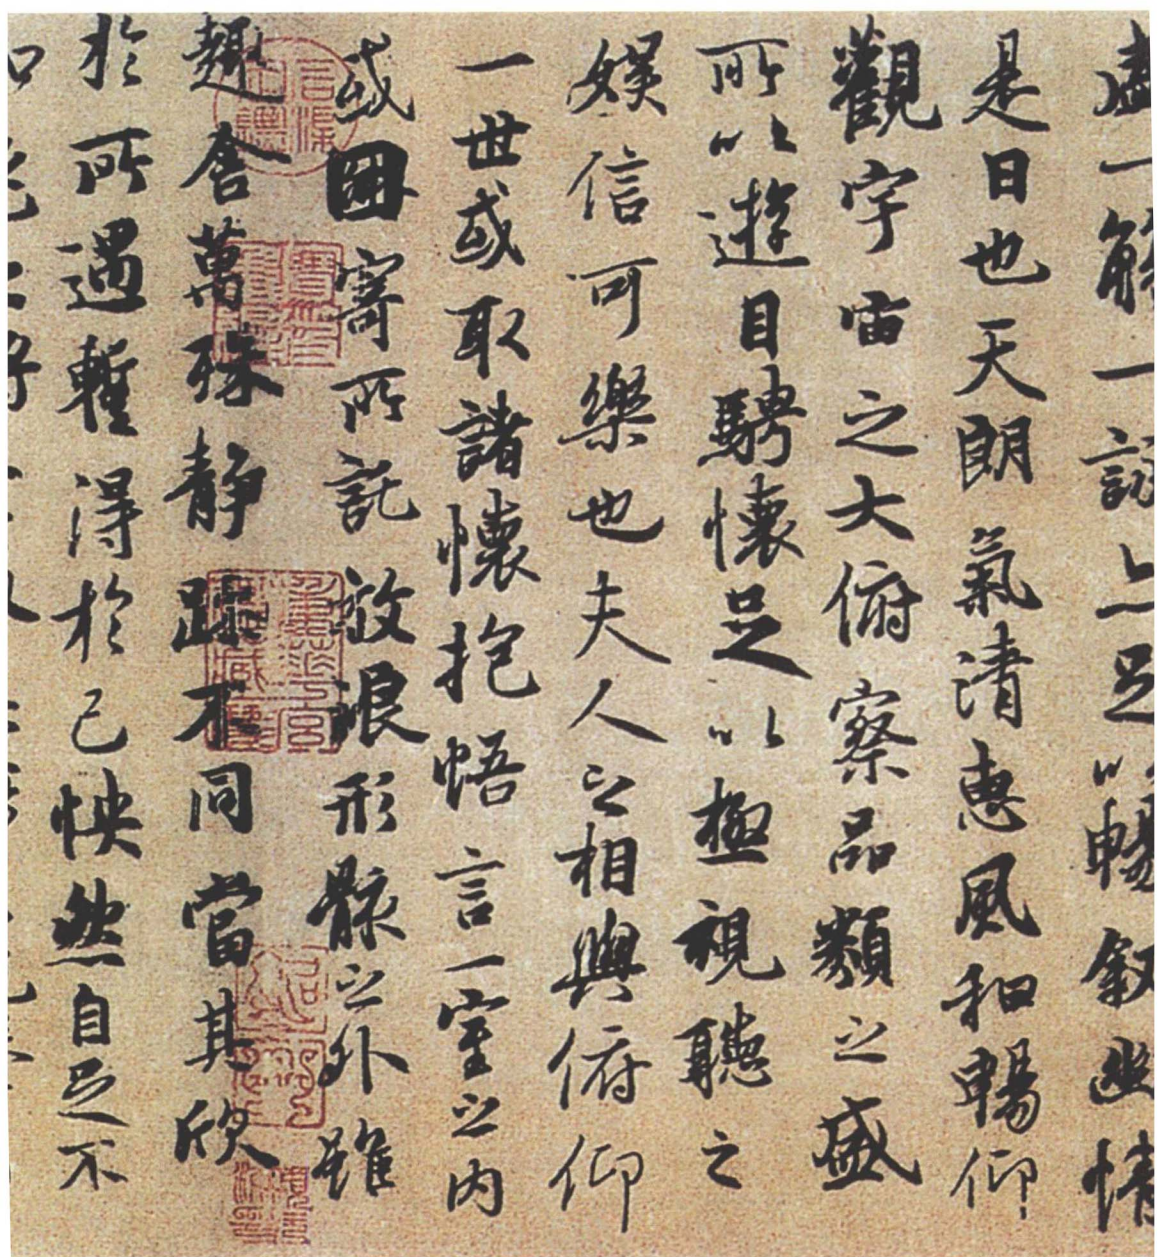 盛一觴一詠亦足以暢敘幽情
是日也天朗氣清惠風和暢仰
觀宇宙之大俯察品類之盛
所以遊目騁懷足以極視聽之
娛信可樂也夫人之相與俯仰
一世或取諸懷抱悟言一室之內
或因寄所託放浪形骸之外雖
趣舍萬殊靜躁不同當其欣
於所遇暫得於己怏然自足不